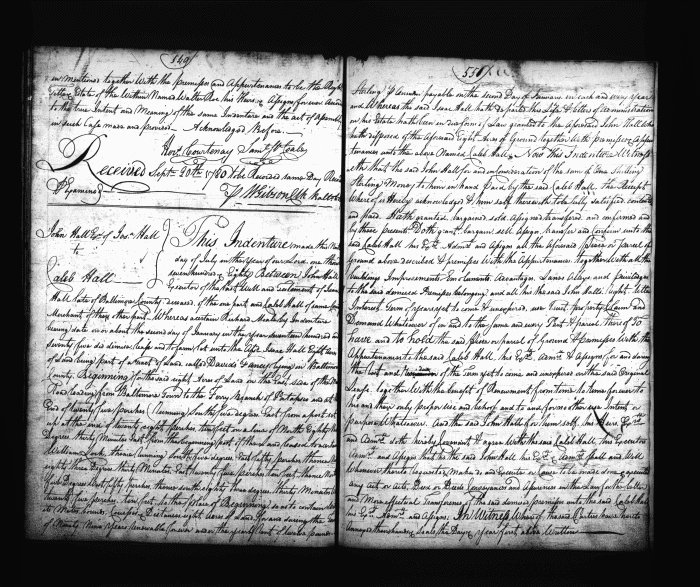 549
in mentioned together With the premises and Appurtenances to be the Right
Estate of the Within Named Walter Roe his Heirs & Assigns forever
to the true Intent and Meaning of the same Indenture and the Act of Assembly
in such Case made and provided. Acknowledged Before.
Received Sept. 20th 1780 to be Recorded same Day
& Examined
John Hall Exr. of Isac. Hall
to
Caleb Hall
This Indenture made this
day of July in the year of our Lord one thousand
seven hundred & Eighty Between John Hall
Executor of the Last Will and testament of Isaac
Hall late of Baltimore County deceased of the one part and Caleb Hall of same
Merchant of the other part. Whereas a certain Richard Moale by Indenture
bearing date on or about the second day of January in the year seventeen hundred and
seventy five did demise lease and to farm let unto the Afd. Isaac Hall Eight Acres
of Land being part of a tract of Land called Davids Fancy lying in Baltimore
County. Beginning for the said eight Acres of Land on the East side of the Main
Road leading from Baltimore Town to the Ferry Branch of Patapsco and at the
End of twenty five perches running South five degrees East from a post set
up at the end of twenty eight perches
Degrees thirty Minutes East from the beginning post of the Land leased to a certain
William Lux thence running South five degrees East fifty perches thence North
eighty three Degrees thirty Minutes East twenty five perches
Degrees West fifty perches thence South eighty three degrees thirty Minutes West
twenty five perches to the place of Beginning
eight Acres of Land for and during the Term
of Ninety Nine Years renewable forever under the yearly Rent of twelve pounds
550
Sterling payable on the second Day of January in each and every year
and Whereas the said Isaac Hall hath departed this Life & Letters of Administration
on his Estate hath been in due form of Law granted to the aforesaid John Hall Who
hath disposed of the Aforesaid Eight Acres of Ground together With premises & Appur
tenances unto the above Named Caleb Hall. Now this Indenture Witness
eth that the said John Hall for and in Consideration of the sum of One Shilling
Sterling Money to him in hand Paid by the said Caleb Hall the Receipt
Whereof is Hereby acknowledged & himself therewith to be fully satisfied contented
and paid Hath granted bargained sold Assigned transfered and confirmed and
by these presents Doth grant bargain sell Assign transfer and Confirm unto the
said Caleb Hall his Exrs. Admrs. and Assigns all the Aforesaid piece or parcel of
Ground above described & premises With the Appurtenances together With all the
buildings Improvements Emoluments Advantages Lanes Alleys and priviledges
to the said demised Premises belonging and all his the said John Halls Right Title
Interest Term of years yet to come & unexpired, use Trust property Claim and
Demand Whatsoever of in and to the same and every Part & parcel thereof To
have and to hold the said piece or parcel of Ground & premises With the
Appurtenances to the said Caleb Hall his Exrs. Admrs. & Assigns for and during
the rest and of the Term yet to come and unexpired on the said Original
Lease together With the benefit of Renewment from time to time forever to
and their only proper use and behoof and to and for no other use Intent or
purpose Whatsoever. And the said John Hall for him self his Heirs Exrs.
and Admrs. doth hereby Covenant & agree With the said Caleb Hall, his Executors
Admrs. and Assigns that he the said John Hall his Exrs. & Admrs. shall and Will
Whenever thereto required Make do and Execute or Cause to be made done & executed
any act or acts, Deed or Deeds Conveyances and Assurances in the Law for the fuller
and More effectual Transference of the said demised premises unto the said Caleb Hall
his Exrs. Admrs. and Assigns. In Witness Whereof the said Parties have hereto
Annexed their hands & Seals the Day & Year first above Written